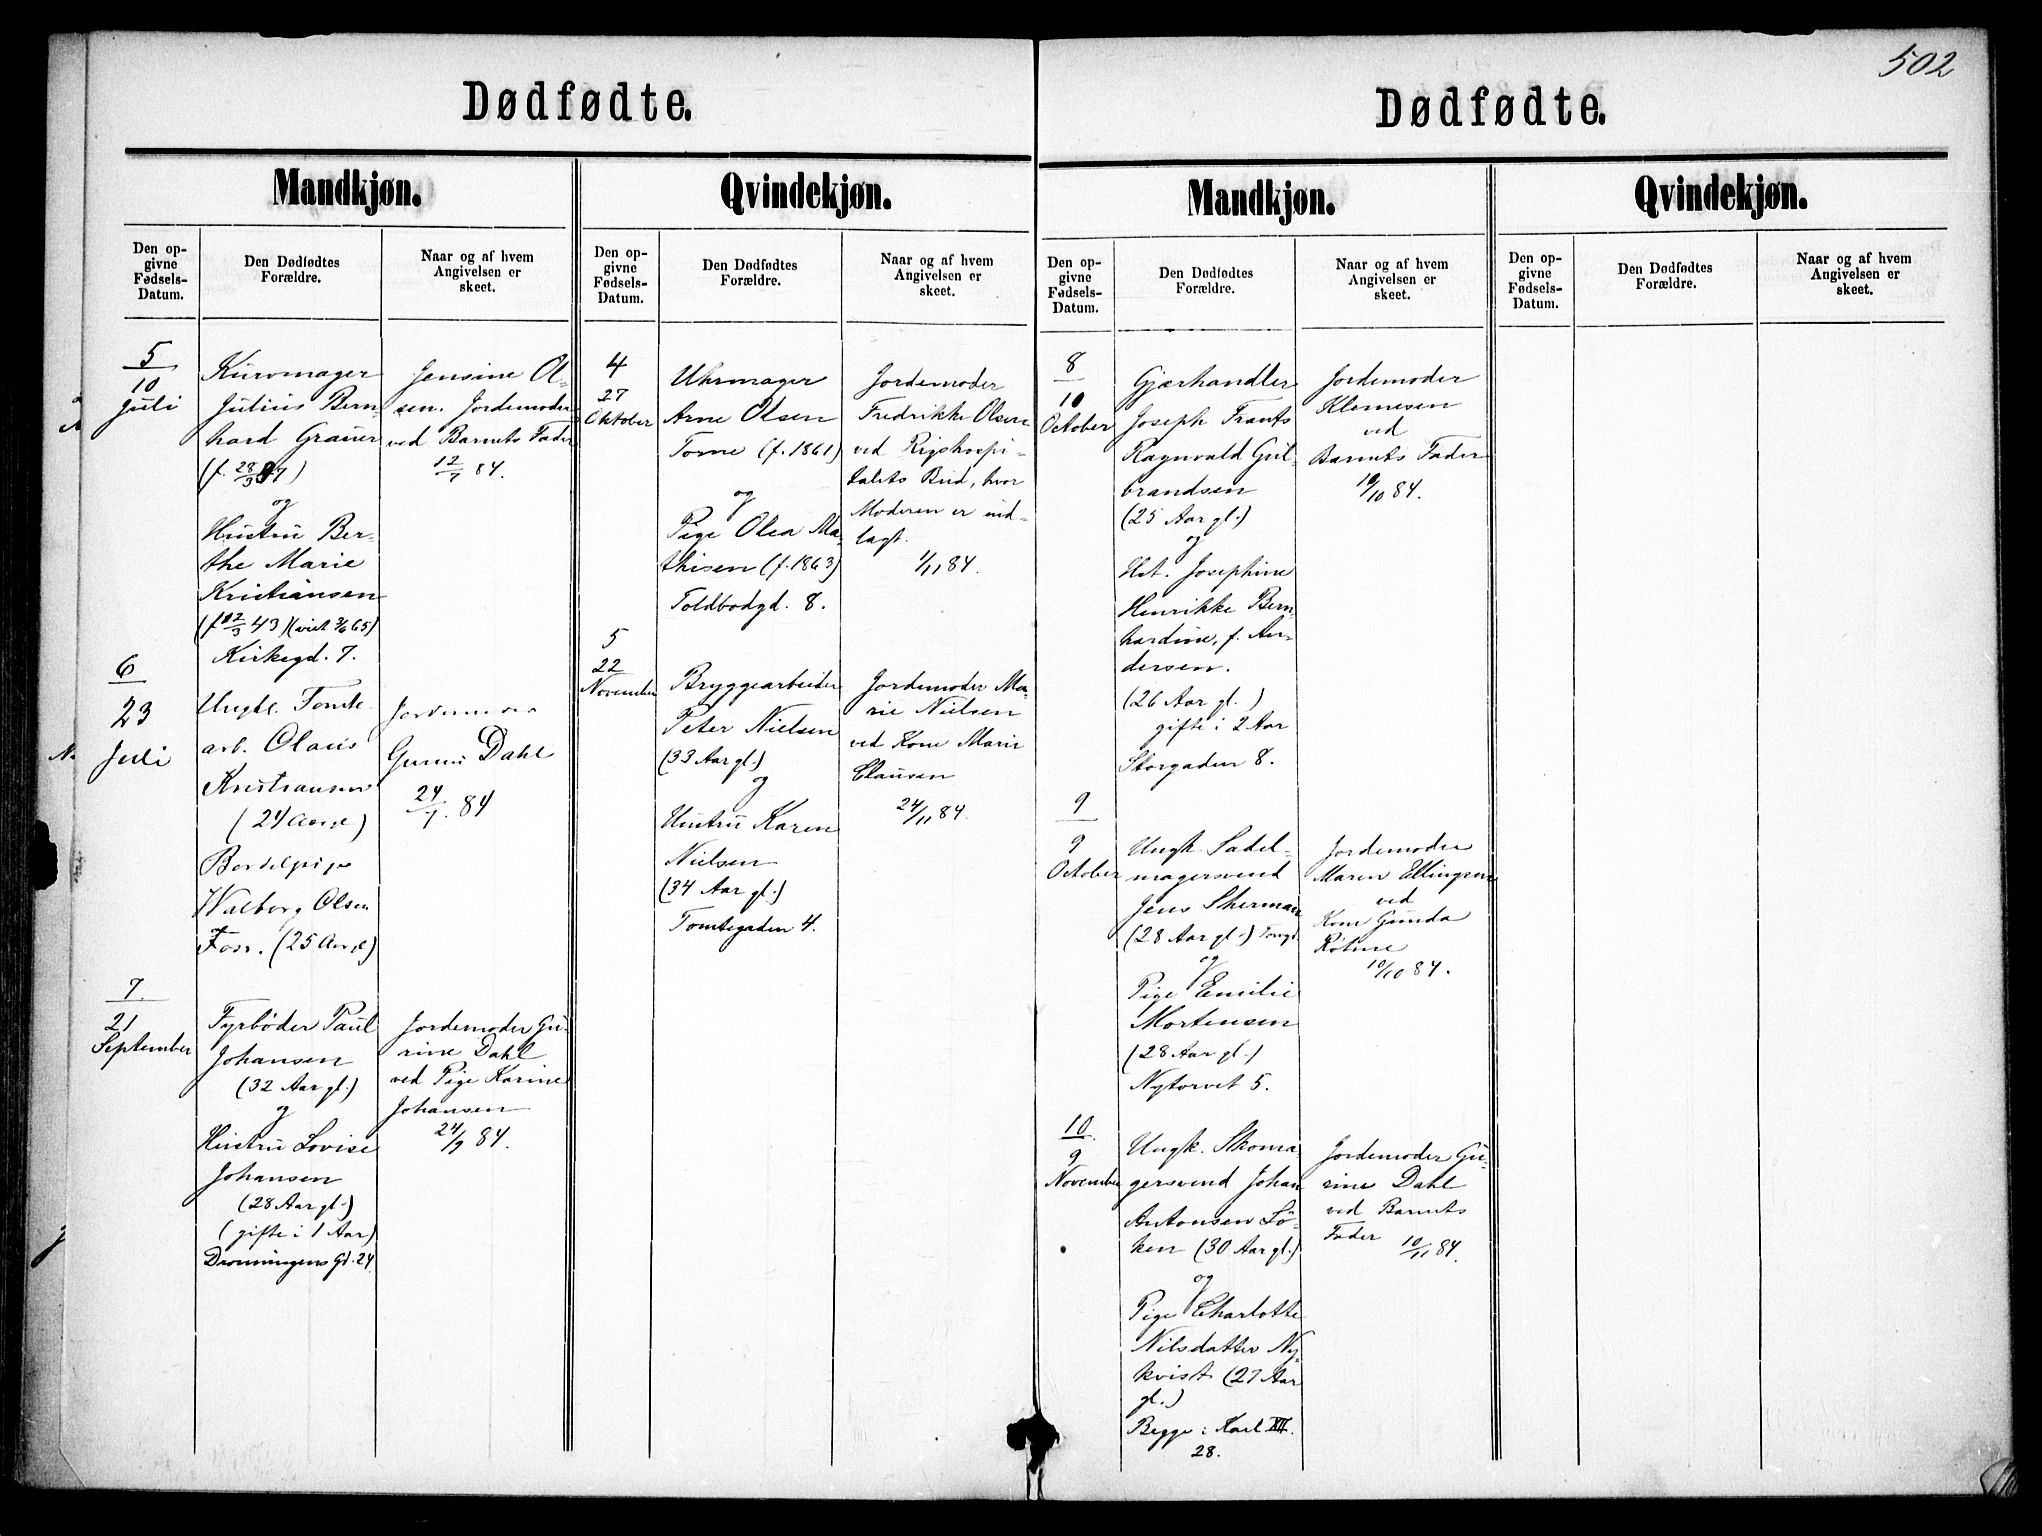 502
Dødfødte.
Mandkjøn.
Den op-
givne
Fødsels-
Datum.
Den Dødfødtes
Forældre.
Naar og af hvem
Angivelsen er
skeet.
5
10
Juli
Kurvmager
Julius Bern
hard Grauer
og
Hustru Ber-
the Marie
Kristiansen
Kirkegd. 7.
Jensine Ol-
sen. Jordemoder
ved Barnets Fader
12/7 84.
6
23
Juli
Ungk. Tomte
arb. Olaus
Kristiansen
(24 Aar gl)
Bordelpige
Walborg Olsen
Foss. (25 Aar gl)
Jordemoder
Gurine Dahl
24/7. 84
7.
21
September
Fyrbøder Paul
Johansen
(32 Aar gl.)
og
Hustru Lovise
Johansen
(28 Aar gl.)
(gifte i 1 Aar)
Dronningens Gd. 24
Jordemoder Gu-
rine Dahl
ved Pige Karine
Johansen
24/9 84.
Qvindekjøn.
Den op-
givne
Fødsels-
Datum.
Den Dødfødtes
Forældre.
Naar og af hvem
Angivelsen er
skeet.
4
27
Oktober
Uhrmager
Arne Olsen
Torne (f. 1861)
og
Pige Olea Ma-
thisen (f. 1863)
Toldbodgd. 8.
Jordemoder
Fredrikke Olsen
ved Rigshospi-
talets Bud, hvor
Moderen er ind-
lagt.
1/11 84.
5
22
November
Bryggearbeider
Peter Nielsen
(33 Aar gl.)
og
Hustru Karen
Nielsen
(34 Aar gl.)
Tomtegaden 4.
Jordemoder Ma-
rie Nielsen
ved Kone Marie
Clausen
24/11 84.
Dødfødte.
Mandkjøn.
Den op-
givne
Fødsels-
Datum.
Den Dødfødtes
Forældre.
Naar og af hvem
Angivelsen er
skeet.
8
10
October
Gjærhandler
Joseph Frants
Ragnvald Gul-
brandsen
(25 Aar gl.)
og
Hst. Josephine
Henrikke Bern
hardine, f. An-
dersen.
(26 Aar gl.)
gifte i 2 Aar
Storgaden 8.
Jordemoder
Klemesen
ved
Barnets Fader
10/10 84.
9
9
October
Ungk. Sadel-
magersvend
Jens Sherman
(28 Aar gl.)
og
Pige Emilie
Mortensen
(28 Aar gl.)
Nytorvet 5.
Jordemoder
Maren Ellingsen
ved
Kone Gunda
10/10 84.
10
9
November
Ungk. Skoma-
gersvend Johan
Antonsen Lö-
ken (30 Aar gl.)
og
Pige Charlotte
Nilsdatter Ny-
kvist (27 Aar
gl.)
Begge: Karl XII.
28.
Jordemoder Gu-
rine Dahl
ved Barnets
Fader 10/11 84.
Qvindekjøn.
Den op-
givne
Fødsels-
Datum.
Den Dødfødtes
Forældre.
Naar og af hvem
Angivelsen er
skeet.